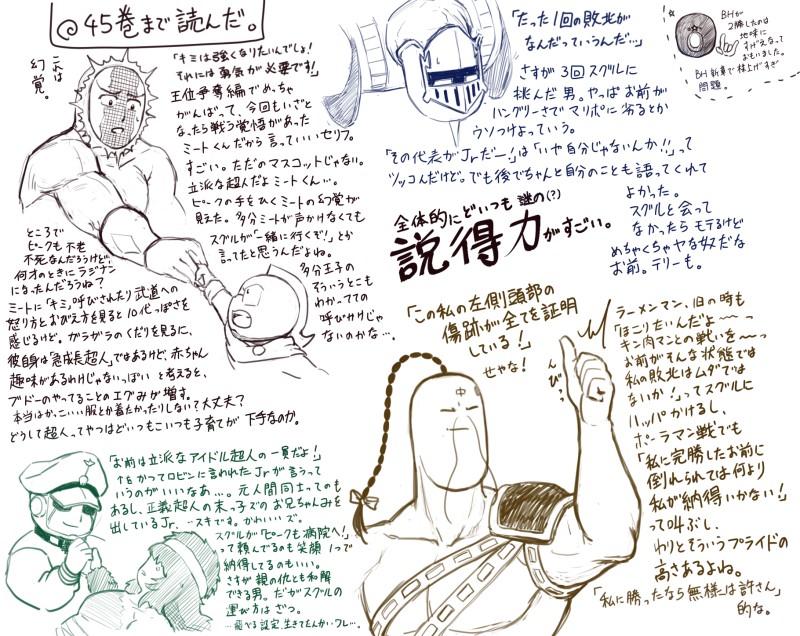 @45巻まで読んだ。
天は
幻覚。
「キミは強くなりたいんでしょ!
それには勇気が必要です!」
王位争奪編でめっちゃ
がんばって、今回もいざと
なったら戦う覚悟があった
ミートくんだから言っていいセリフ。
すごい。ただのマスコットじゃない。
立派な超人だよミートくん…。
ピークの手をひくミートの幻覚が
見えた。多分ミートが声かけなくても
スグルが「一緒に行くぞ!」とか
言ってたと思うんだよね。
多分王子の
そういうとこも
わかってての
呼びかけじゃ
ないのかな…
ところで
ピークも不老
不死なんだろうけど、
何才のときにラジナン
になったんだろうね?
ミートに「キミ」呼びされたり武道への
怒り方とおびえ方を見ると10代っぽさを
感じるけど。ガラガラのくだりを見るに、
彼自身は「急成長超人」ではあるけど、赤ちゃん
趣味があるわけじゃないっぽいと考えると、
ブドーのやってることのエグみが増す。
本当はかっこいい服とか着たかったりしない?大丈夫?
どうして超人ってやつはどいつもこいつも子育てが下手なのか。
「たった1回の敗北が
なんだっていうんだ…」
さすが3回スグルに
挑んだ男。やっぱお前が
ハングリーさでマリポに劣るとか
ウソつけよっていう。
「その代表がJrだー!」は「いや自分じゃないんか!!」って
ツッコんだけど。でも後でちゃんと自分のことも語ってくれて
よかった。
スグルと会って
なかったらモテるけど
めちゃくちゃヤな奴だな
お前。テリーも。
BHが
2勝したのは
地味に
すげえなって
おもいました。
BH新章で株上げすぎ
問題。
全体的にどいつも謎の(?)
説得力がすごい。
「この私の左側頭部の
傷跡が全てを証明
している!」
せやな!
んびっ
中
ラーメンマン、旧の時も
「ほこりたいんだよ~~っ
キン肉マンとの戦いを~~っ
お前がそんな状態では
私の敗北はムダでは
ないか!」ってスグルに
ハッパかけるし、
ポーラマン戦でも
「私に完勝したお前に
倒れられては何より
私が納得いかない!」
って叫ぶし、
わりとそういうプライドの
高さあるよね。
「私に勝ったなら無様は許さん」
的な。
「お前は立派なアイドル超人の一員だよ!」
↑をかつてロビンに言われたJrが言うって
いうのがいいなあ…。元人間同士ってのも
あるし、正義超人の末っ子ズのお兄ちゃんみを
出しているJr.…スキです。かわいいズ。
スグルが「ピークも病院へ!」
って頼んでるのも笑顔1つで
納得してるのもいい。
さすが親の仇とも和解
できる男。だがスグルの
運び方はざつ。
…飛べる設定、生きてたんかいワレ…